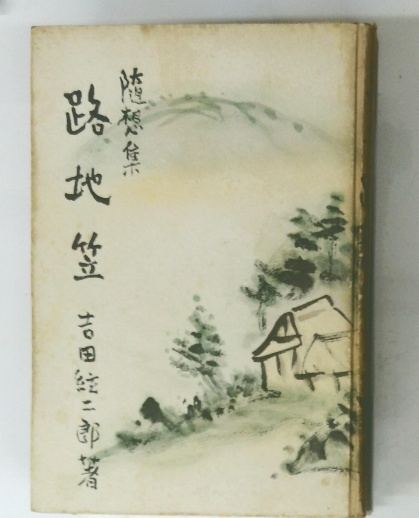 隨想集
路地笠
吉田絃二郎著